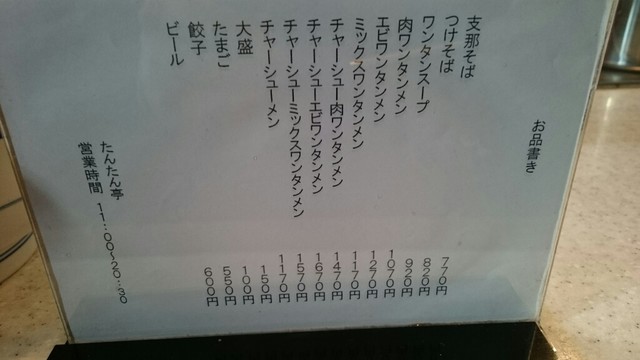 お品書き
支那そば 770円
つけそば 820円
ワンタンスープ 920円
肉ワンタンメン 1070円
エビワンタンメン 1270円
ミックスワンタンメン 1170円
チャーシュー肉ワンタンメン 1470円
チャーシューエビワンタンメン 1670円
チャーシューミックスワンタンメン 1570円
チャーシューメン 1170円
大盛 150円
たまご 100円
餃子 550円
ビール 600円
たんたん亭
営業時間 11:00~20:30